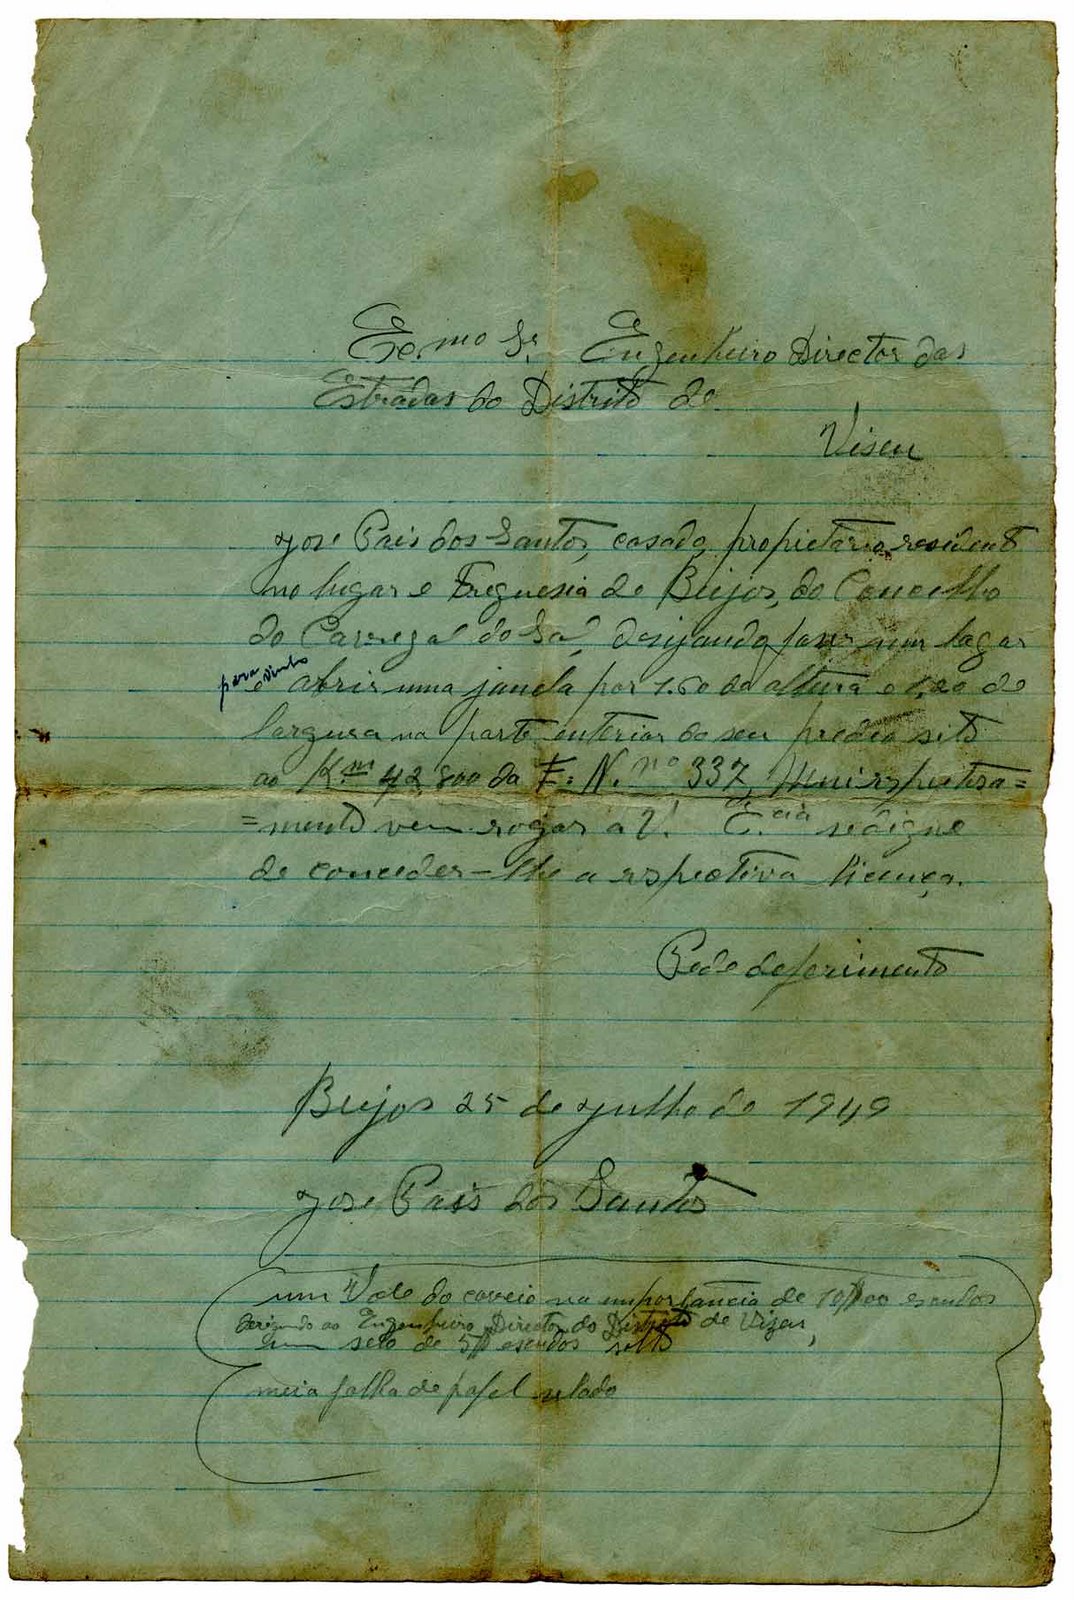 Ex.mo Sr. Engenheiro Director das
Estradas do Distrito de
Viseu
José Pais dos Santos, casado, propietário, residente
no lugar e Freguesia de Beijos, do Concelho
do Carregal do Sal, desijando fazer um lagar
para vinho
e abrir uma janela por 1.60 de altura e 1,20 de
largura na parte enterior do seu predio sito
ao K.m 42,800 da E. N. nº 337, Mui respeitosa=
=mente vem rogar a V. Ex.cia se digne
de conceder-lhe a respectiva licença.
Pede deferimento
Beijos 25 de julho de 1949
José Pais dos Santos
um Vale do correio na importancia de 10$00 escudos
derigindo ao Engenheiro Director do Distrito de Viseu,
um selo de 5$ escudos solto
meia folha de papel selado